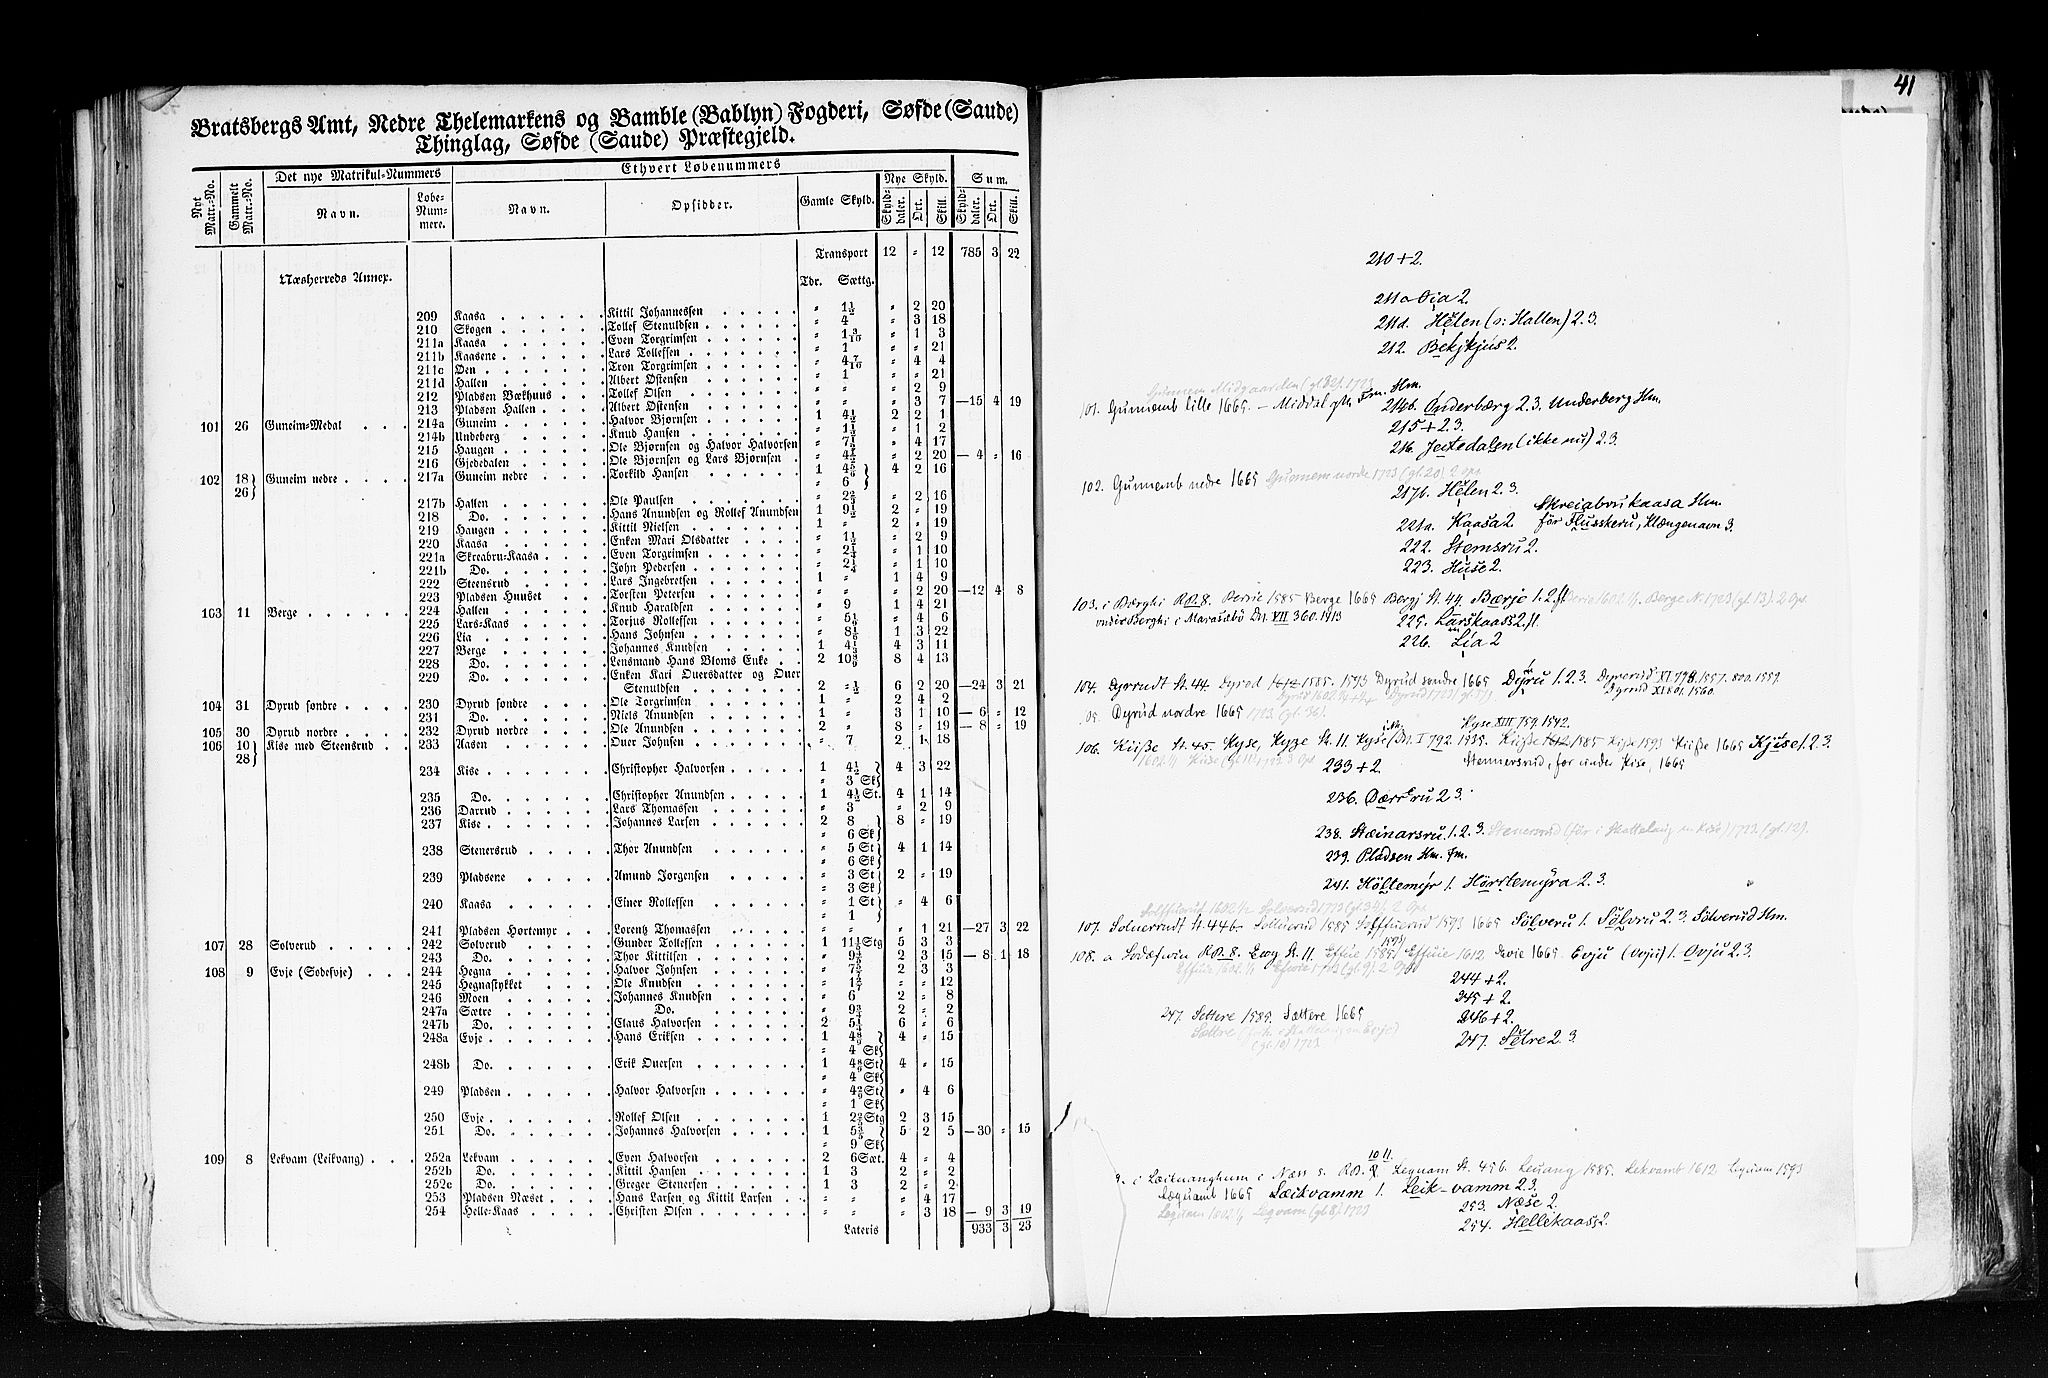 Bratsbergs Amt, Nedre Thelemarkens og Bamble (Bablyn) Fogderi, Søfde (Saude)
Thinglag, Søfde (Saude) Præstegjeld.
Nyt Matr.-No. Gammelt Matr.-No. Det nye Matrikul-Nummers Ethvert Løbenummers
Navn. Løbe-Nummere. Navn. Opsidder. Gamle Skyld. Nye Skyld. Sum.
Skylddaler. Ort. Skill. Skylddaler. Ort. Skill.
Transport 12 " 12 785 3 22
Næsherreds Annex. Tdr. Sættg.
209 Kaasa Kittil Johannessen " 1½ " 2 20
210 Skogen Tollef Stenuldsen " 4 " 3 18
211a Kaasa Even Torgrimsen " 1 3/10 " 1 3
211b Kaasene Lars Tollefsen " 1 " " 21
211c Den Tron Torgrimsen " 4 7/10 " 4 4
211d Hallen Albert Østensen " 1 " " 21
212 Pladsen Bækhuus Tollef Olsen " " " 2 9
213 Pladsen Hallen Albert Østensen " " " 3 7 —15 4 19
101 26 Guneim-Medal 214a Guneim Halvor Bjørnsen 1 4½ 2 2 1
214b Undeberg Knud Hansen " 1½ " 1 2
215 Haugen Ole Bjørnsen og Halvor Halvorsen " 7½ " 4 17
216 Gjededalen Ole Bjørnsen og Lars Bjørnsen " 4½ " 2 20 — 4 " 16
102 18 Guneim nedre 217a Guneim nedre Torkild Hansen 1 4 5/6 } 4 2 16
26} " 6 }
217b Hallen Ole Paulsen " 2⅔ " 2 16
218 Do. Hans Anundsen og Rollef Anundsen 1 9½ 2 " 19
219 Haugen Kittil Nielsen 1 " 2 " 19
220 Kaasa Enken Mari Olsdatter " 1½ " 2 9
221a Skreabru-Kaasa Even Torgrimsen " 2¼ " 1 10
221b Do. John Pedersen " 2¼ " 1 10
222 Steensrud Lars Ingebretsen 1 " 1 4 9
223 Pladsen Huuset Torsten Petersen " " " 2 20 —12 4 8
103 11 Berge 224 Hallen Knud Haraldsen " 9 1 4 21
225 Lars-Kaas Torjus Rollefsen " 5⅙ " 4 6
226 Lia Hans Johnsen " 8⅙ 1 3 22
227 Berge Johannes Knudsen 1 4⅓ 4 3 11
228 Do. Lensmand Hans Bloms Enke 2 10 8/9 8 4 13
229 Do. Enken Kari Ouersdatter og Ouer
Stenuldsen 2 "½ 6 2 20 —24 3 21
104 31 Dyrud søndre 230 Dyrud søndre Ole Torgrimsen 1 " 2 4 2
231 Do. Niels Anundsen 1 " 3 1 10 — 6 " 12
105 30 Dyrud nordre 232 Dyrud nordre Ole Anundsen 2 " 8 " 19 — 8 " 19
106 10 Kise med Steensrud 233 Aasen Ouer Johnsen " 7 2 1 18
28}
234 Kise Christopher Halvorsen 1 4½ } 4 3 22
" 3 Sk}
235 Do. Christopher Anundsen 1 4½ St. 4 1 14
236 Darrud Lars Thomassen " 3 " 2 9
237 Kise Johannes Larsen 2 8 } 8 " 19
" 6 Sk}
238 Stenersrud Thor Anundsen " 5 St 4 1 14
" 6 Sk}
239 Pladsene Amund Jorgensen " 3 St} 2 " 19
" 3 Sk}
240 Kaasa Einer Rollefsen " 1 St} " 4 6
" 1 }
241 Pladsen Hortemyr Lorentz Thomassen " " " 1 21 —27 3 22
107 28 Solverud 242 Solverud Gunder Tollefsen 1 11⅕ Stg 5 3 3
243 Do. Thor Kittilsen " 9⅗ 2 3 15 — 8 1 18
108 9 Evje (Sodefvje) 244 Hegna Halvor Johnsen " 7½ 2 3 3
245 Hegnastykket Ole Knudsen " 1 2/7 " " 12
246 Moen Johannes Knudsen " 6 2 " 8
247a Sætre Do. " 9¾ 2 " 2
247b Do. Claus Halvorsen 2 5¼ 6 " 6
248a Evje Hans Eriksen 1 4 8/9 } 4 " 15
" 4 Sk}
248b Do. Erik Ouersen 1 4 8/9 St} 4 " 15
" 4 Sk}
249 Pladsen Halvor Halvorsen " 4 2/9 St} " 4 6
" 1 Sk}
250 Evje Rollef Olsen 1 2⅖ Stg 2 3 15
251 Do. Johannes Halvorsen 1 5⅗ } 5 2 5 —30 " 15
" 9 Sk}
109 8 Lekvam (Leikvang) 252a Lekvam Even Halvorsen 2 6 Sæt. 4 " 4
252b Do. Kittil Hansen 1 3 2 " 2
252c Do. Greger Stenersen 1 3 2 " 2
253 Pladsen Næset Hans Larsen og Kittil Larsen " " " 4 17
254 Helle-Kaas Christen Olsen " " " 3 18 — 9 3 19
Lateris 933 3 23
41
210 + 2.
211a Lia 2.
211d. Hélen (ɔ: Hallen) 2. 3.
212. Bekjkjus 2.
Gunnem Midgaarden (gl. 32). 1723
Hm.
101. Gunnemb lille 1665. – Middal gM. Fm. 214b. Onderbærg 2. 3. Underberg Hm.
215 + 2. 3.
216. Jeitedalen (ikke nu) 2. 3.
102. Gunnemb nedre 1665 Gunnem nordre 1723 (gl. 20) 2 Ops.
217b. Hélen 2. 3.
Skreiabrukaasa Hm.
221a. Kaasa 2 før Flusskeru, Klængenavn 3.
222. Stemsru 2.
223. Huse 2.
103. i Bærghi R.B. 8. Berrie 1585 Berge 1665 Bergj St. 44. Bærje 1. 2. fl. Berie 1602. 1/1 Berge N. 1723 (gl. 13). 2 Ops
under Berghi i Marasabø Dn. VII 360. 1413 225. Larskaas 2. fl.
226. Lia 2
104. Dyrrudt St. 44. Dyrod 1585. 1593 Dyrud søndre 1665 Dyru 1. 2. 3. Dyrerud XI 798. 1557. 800. 1559.
Dyrud XI 801. 1560.
05. Dyrud nordre 1665 1723. (gl. 36).
Kyse XIII 759. 1542.
106. Kiisse St. 45. Kyse, Kyze St. 11. Kyse Dn. I 792. 1535. Kiisse 1585 Kisse 1593 Kiisse 1665 Kjise 1. 2. 3.
233 + 2. Stennersrud, før under Kise, 1665
236. Dærrru 2 3.
238. Steinarsru 1. 2. 3. Stenersrud (før i Skattelaug m Kise) 1723. (gl. 12).
239. Pladsen Hm. Fm.
241. Høltemyr 1. Hørrtemyra 2. 3.
Solffuerud 1602 1/1 Solverud 1723 (gl. 34). 2 Ops
107. Soluerrudt St. 44b. Solluerud 1585 Solffuerud 1593 1665 Sølveru 1. Sølvru 2. 3. Sølverud Hm.
108. a Sodæfwin R.B. 8. Ewg St. 11 Effuie 1585 1593 Effuie 1612 Evie 1665 Evju (Ovju) 1. Ovju 2. 3.
Effuie 1602. 1/1 Efwie 1723 (gl. 9). 2 Ops
244 + 2.
245 + 2.
247. Settere 1585. Sættere 1665 246 + 2.
247. Sétre 2. 3.
(gl. 10) 1723
10 11.
9. i Læikuanghum i Næss s. R.B. 8 Leguam St. 45b. Leuang 1585. Lekvamb 1612 Leguam 1593
Læquamb 1665 Læikvamm 1. Leik-vamm 2. 3.
253. Næse 2.
Leguam 1602 1/1 Legvam (gl. 8). 1723
254. Hellekaas 2.